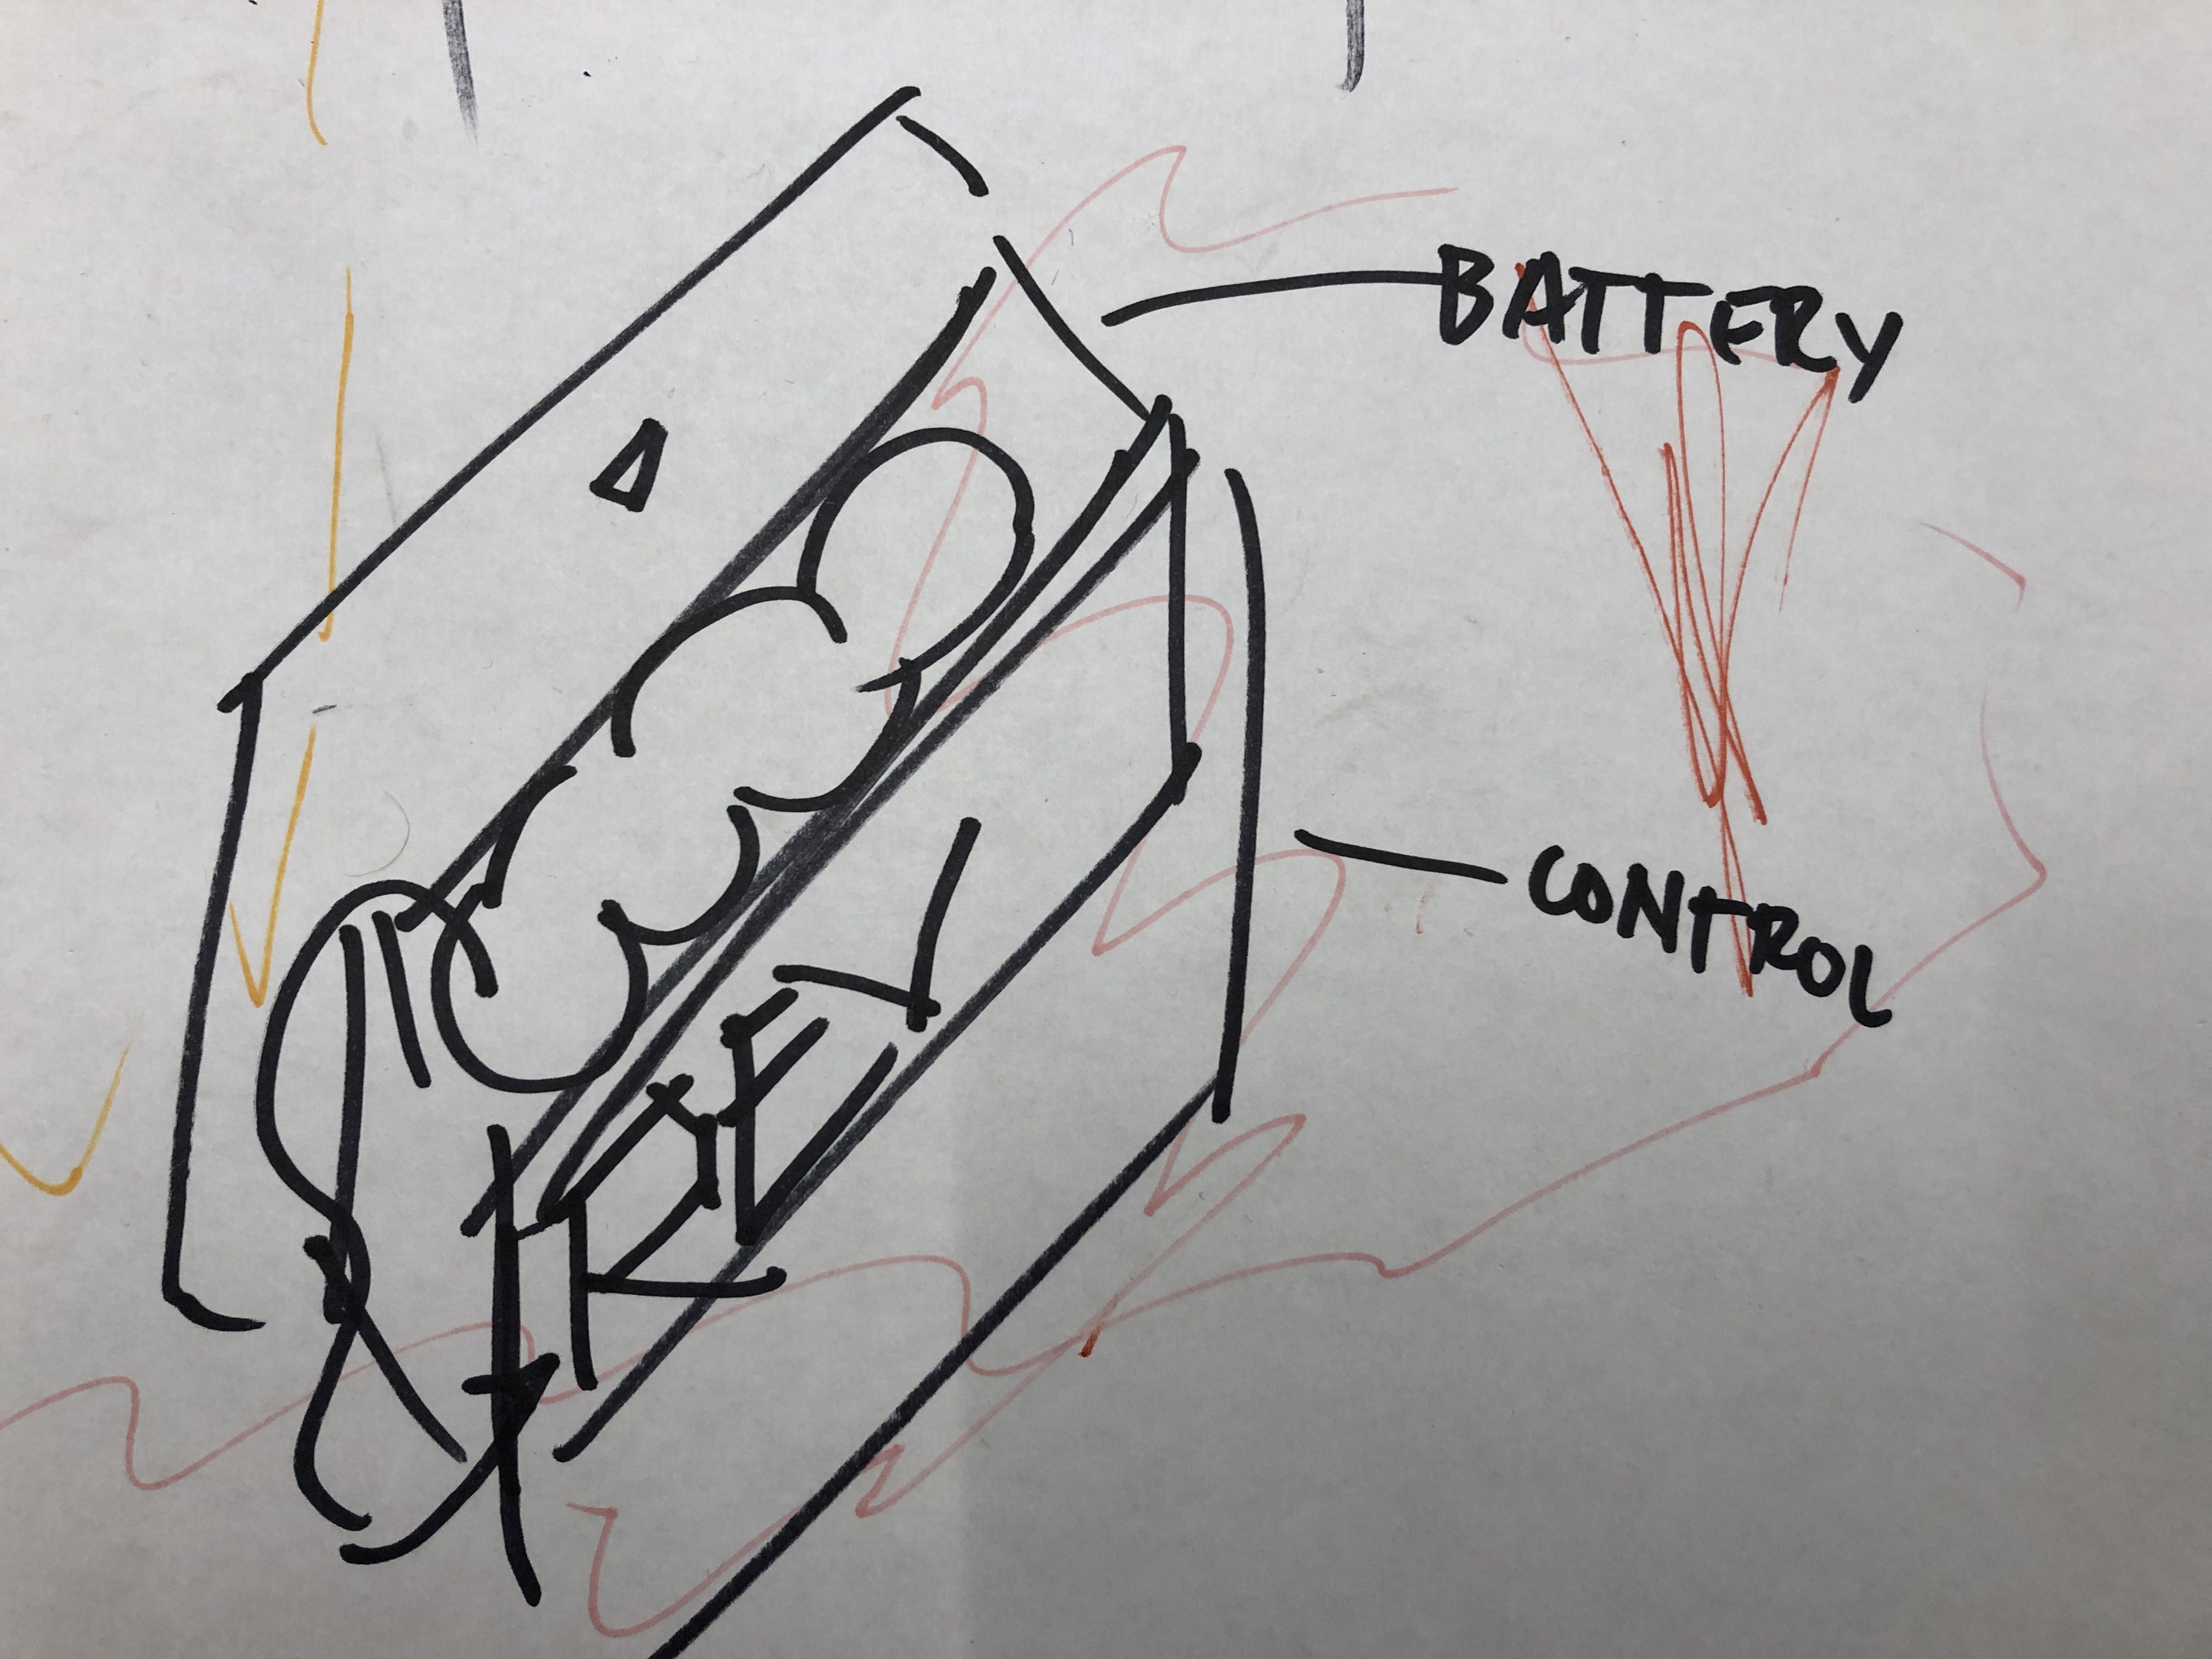 BATTERY
CONTROL